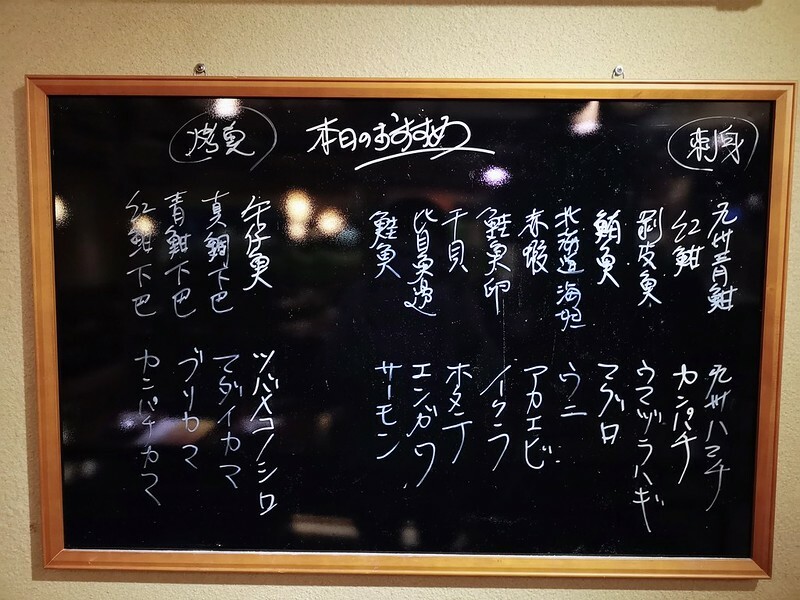 本日のおすすめ
刺身
九州青魽 九州ハマチ
紅魽 カンパチ
剥皮魚 ウマヅラハギ
鮪魚 マグロ
北海道海胆 ウニ
赤蝦 アカエビ
鮭魚卵 イクラ
干貝 ホタテ
比目魚邊 エンガワ
鮭魚 サーモン
烤魚
午仔魚 ツバメコノシロ
真鯛下巴 マダイカマ
青魽下巴 ブリカマ
紅魽下巴 カンパチカマ